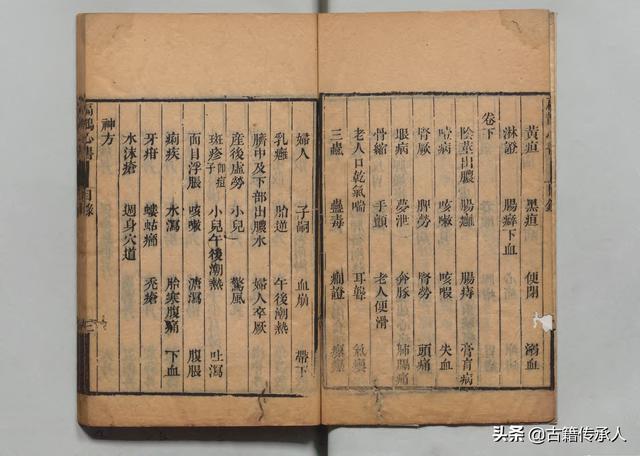 黃疸 黑疸 便閉 溺血
淋證 腸癖下血
卷下
陰莖出膿 腸癰 腸痔 膏肓病
噎病 咳嗽 咳暇 失血
腎厥 脾勞 腎勞 頭痛
眼病 夢泄 奔豚 肺膈痛
骨縮 手顫 老人便滑
老人口乾氣喘 耳聾
三蟲 蠱毒 癇證 瘰癧
婦人 子嗣 血崩 帶下
乳癰 胎逆 午後潮熱
臍中及下部出膿水 婦人卒厥
產後虛勞 小兒 驚風
斑疹即痘子 小兒午後潮熱 吐瀉
面目浮脹 咳嗽 溏瀉 腹脹
痢疾 水瀉 胎寒腹痛 下血
牙疳 螻蛄 禿瘡
水沫瘡 週身穴道
神方
扁鵲心書 目錄 三
头条 @古籍传承人